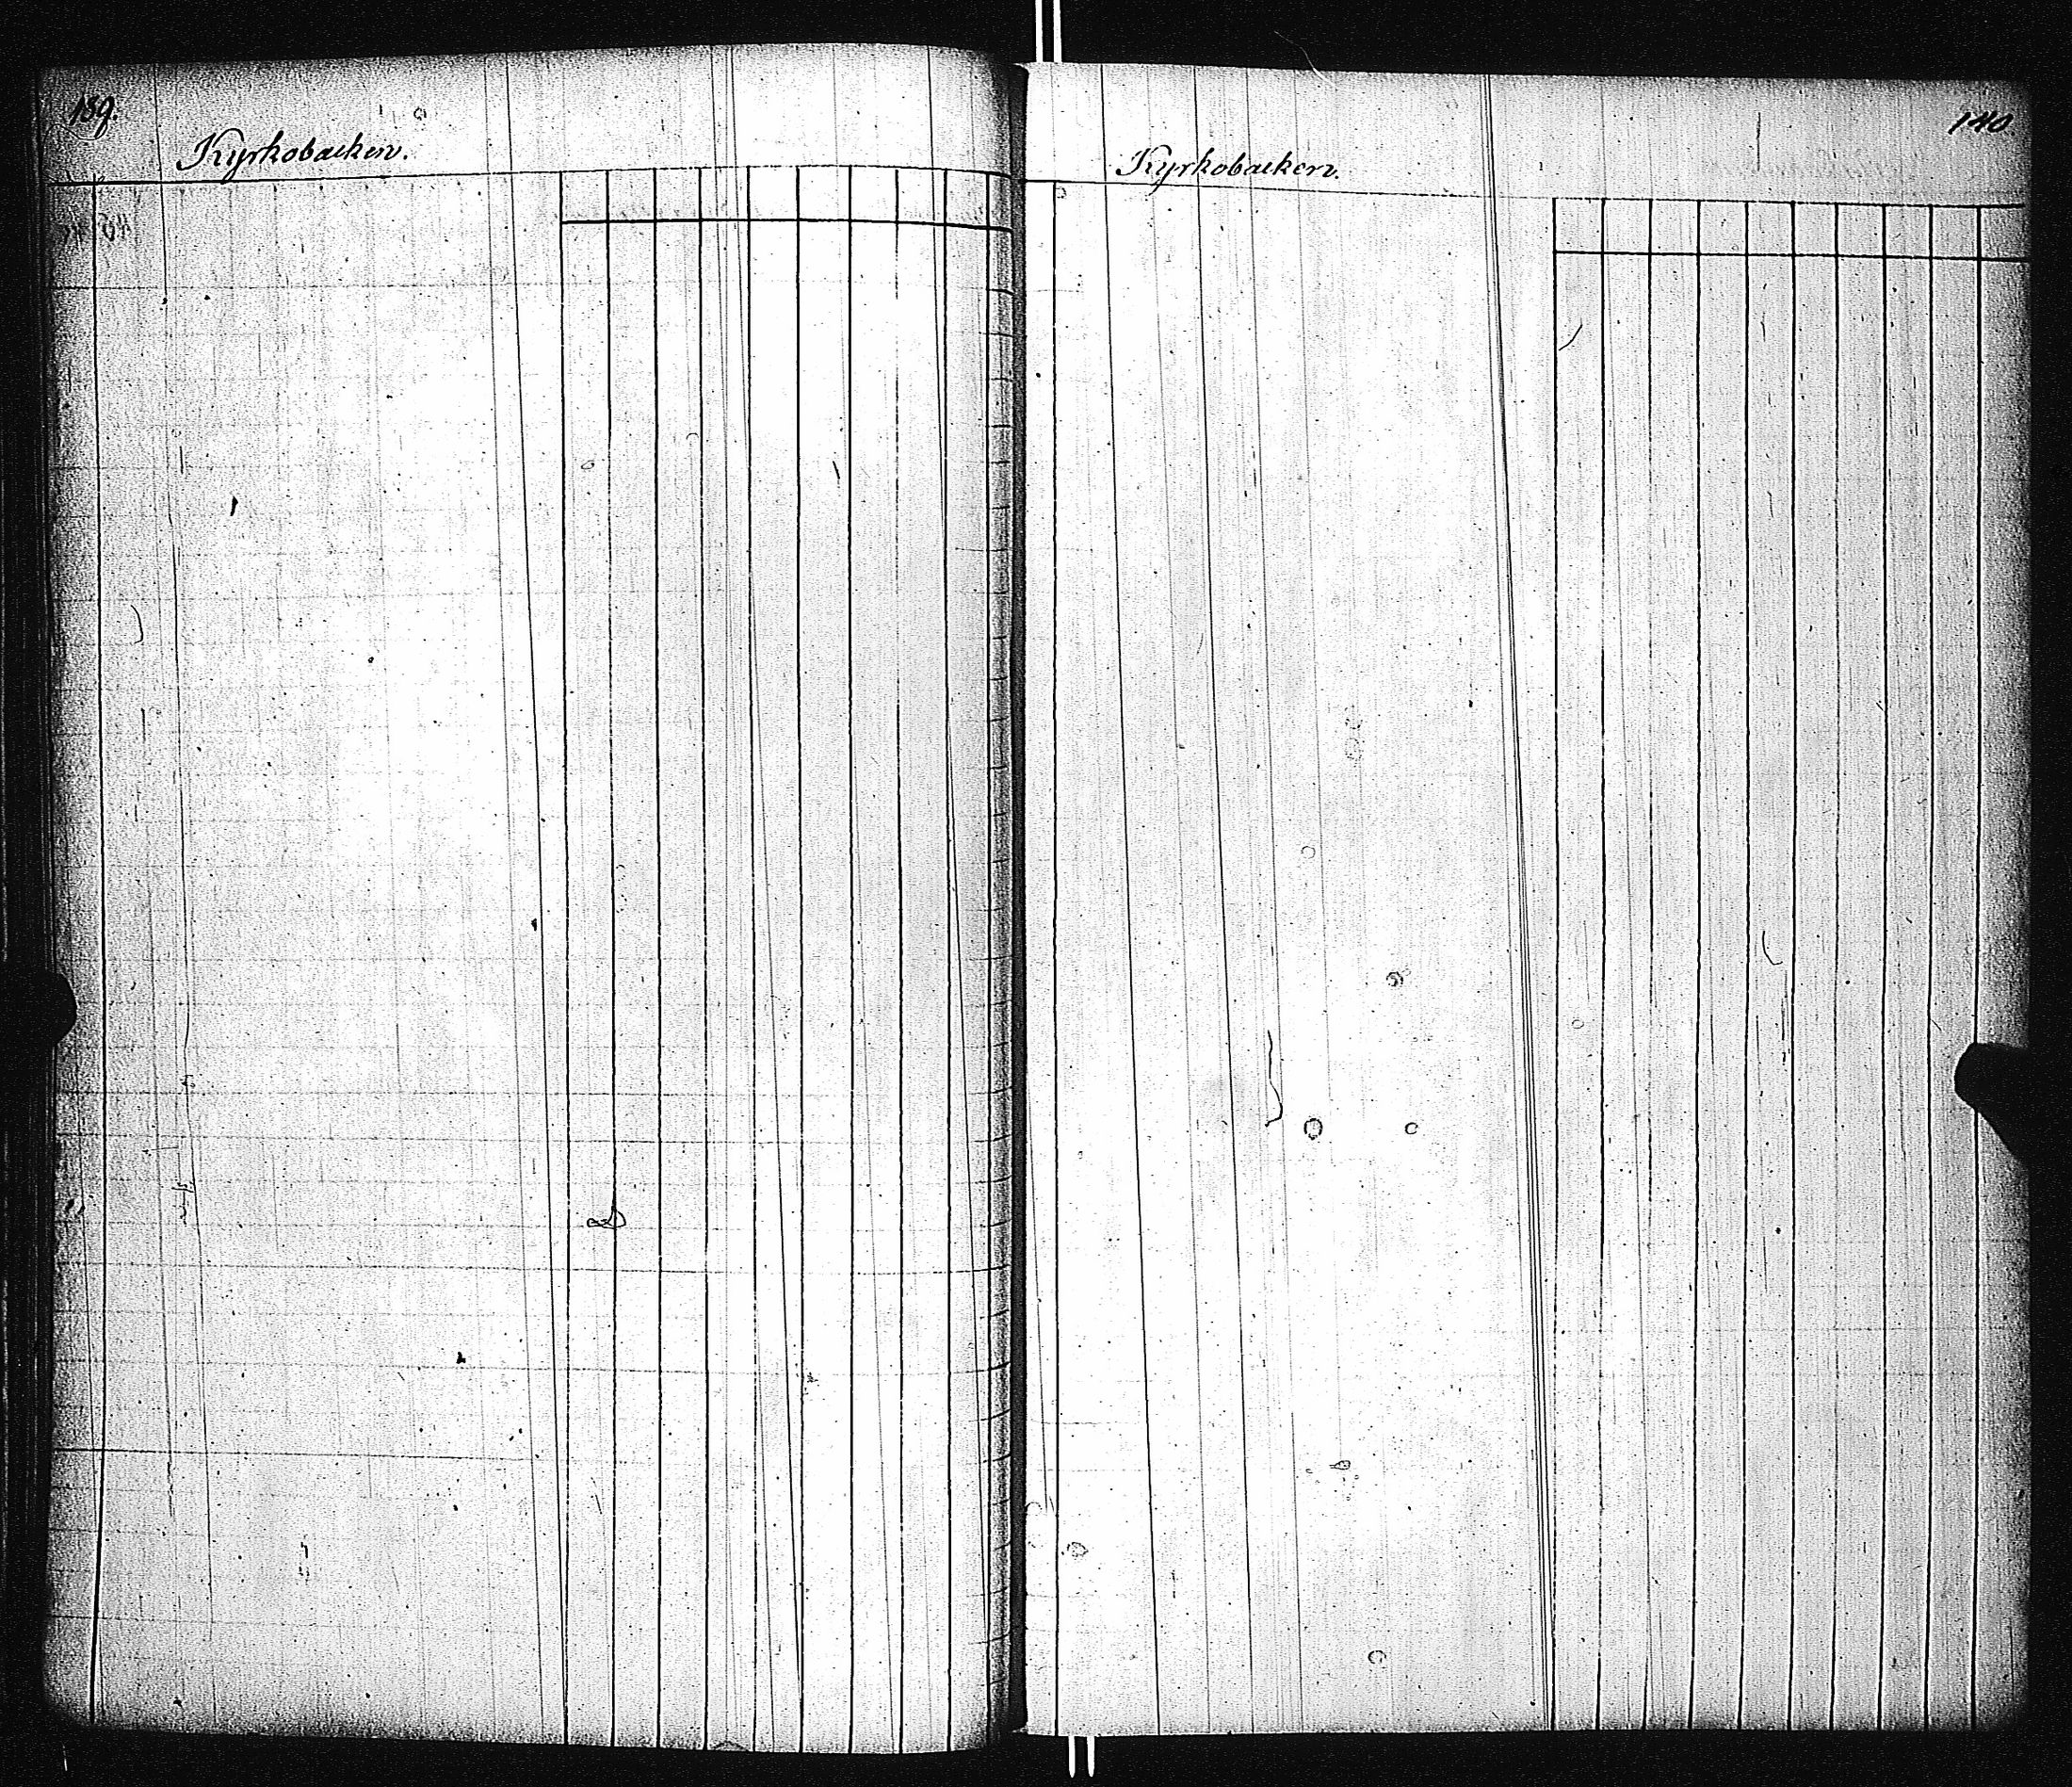 139.
Kyrkobacken.
140
Kyrkobacken.